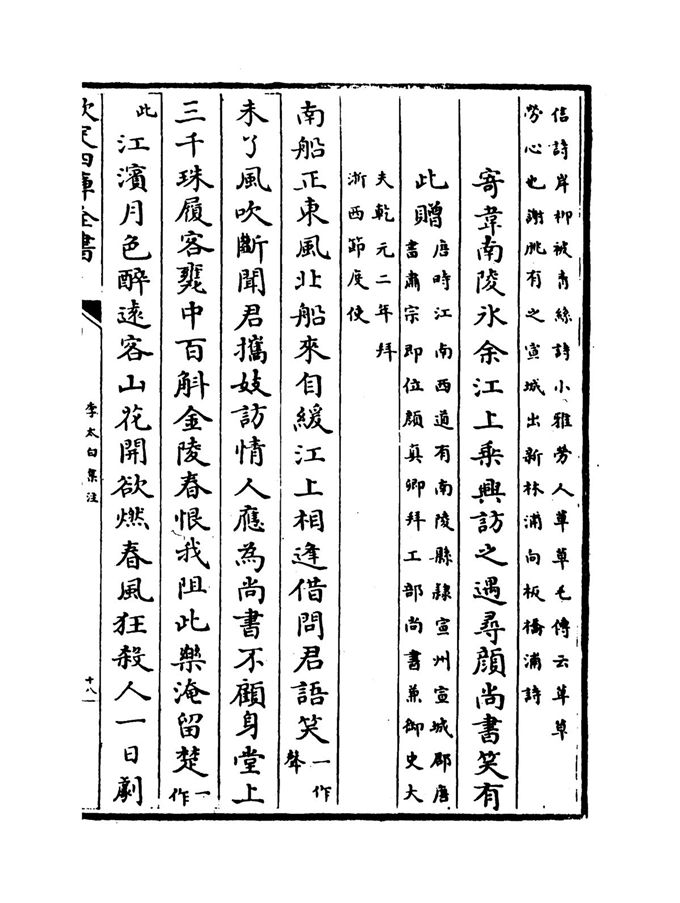 信詩岸柳被青絲詩小雅勞人草草毛傳云草草
勞心也謝朓有之宣城出新林浦向板橋浦詩
寄韋南陵氷余江上乗興訪之遇尋顔尚書笑有
此贈唐時江南西道有南陵縣隸宣州宣城郡唐
書肅宗即位顔真卿拜工部尚書兼御史大
夫乾元二年拜
浙西節度使
南船正東風北船來自緩江上相逢借問君語笑一作聲
未了風吹斷聞君攜妓訪情人應為尚書不顧身堂上
三千珠履客甕中百斛金陵春恨我阻此樂淹留楚一作
此江濱月色醉遠客山花開欲燃春風狂殺人一日劇
欽定四庫全書
李太白集注
十八